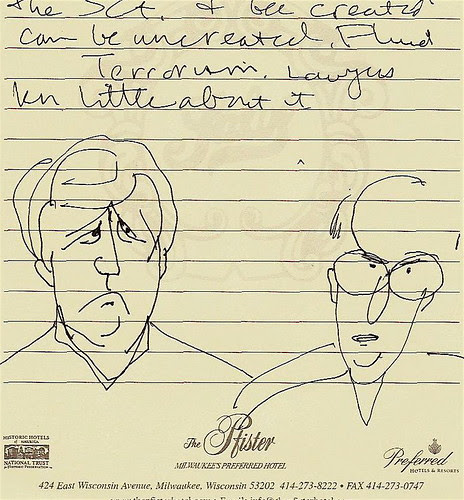 the SCt. & be created
can be uncreated. Fluid
Terrorism. Lawyers
kn. little about it
HISTORIC HOTELS
of AMERICA
NATIONAL TRUST
The Pfister
MILWAUKEE'S PREFERRED HOTEL
Preferred
HOTELS & RESORTS
424 East Wisconsin Avenue, Milwaukee, Wisconsin 53202 414-273-8222 • FAX 414-273-0747